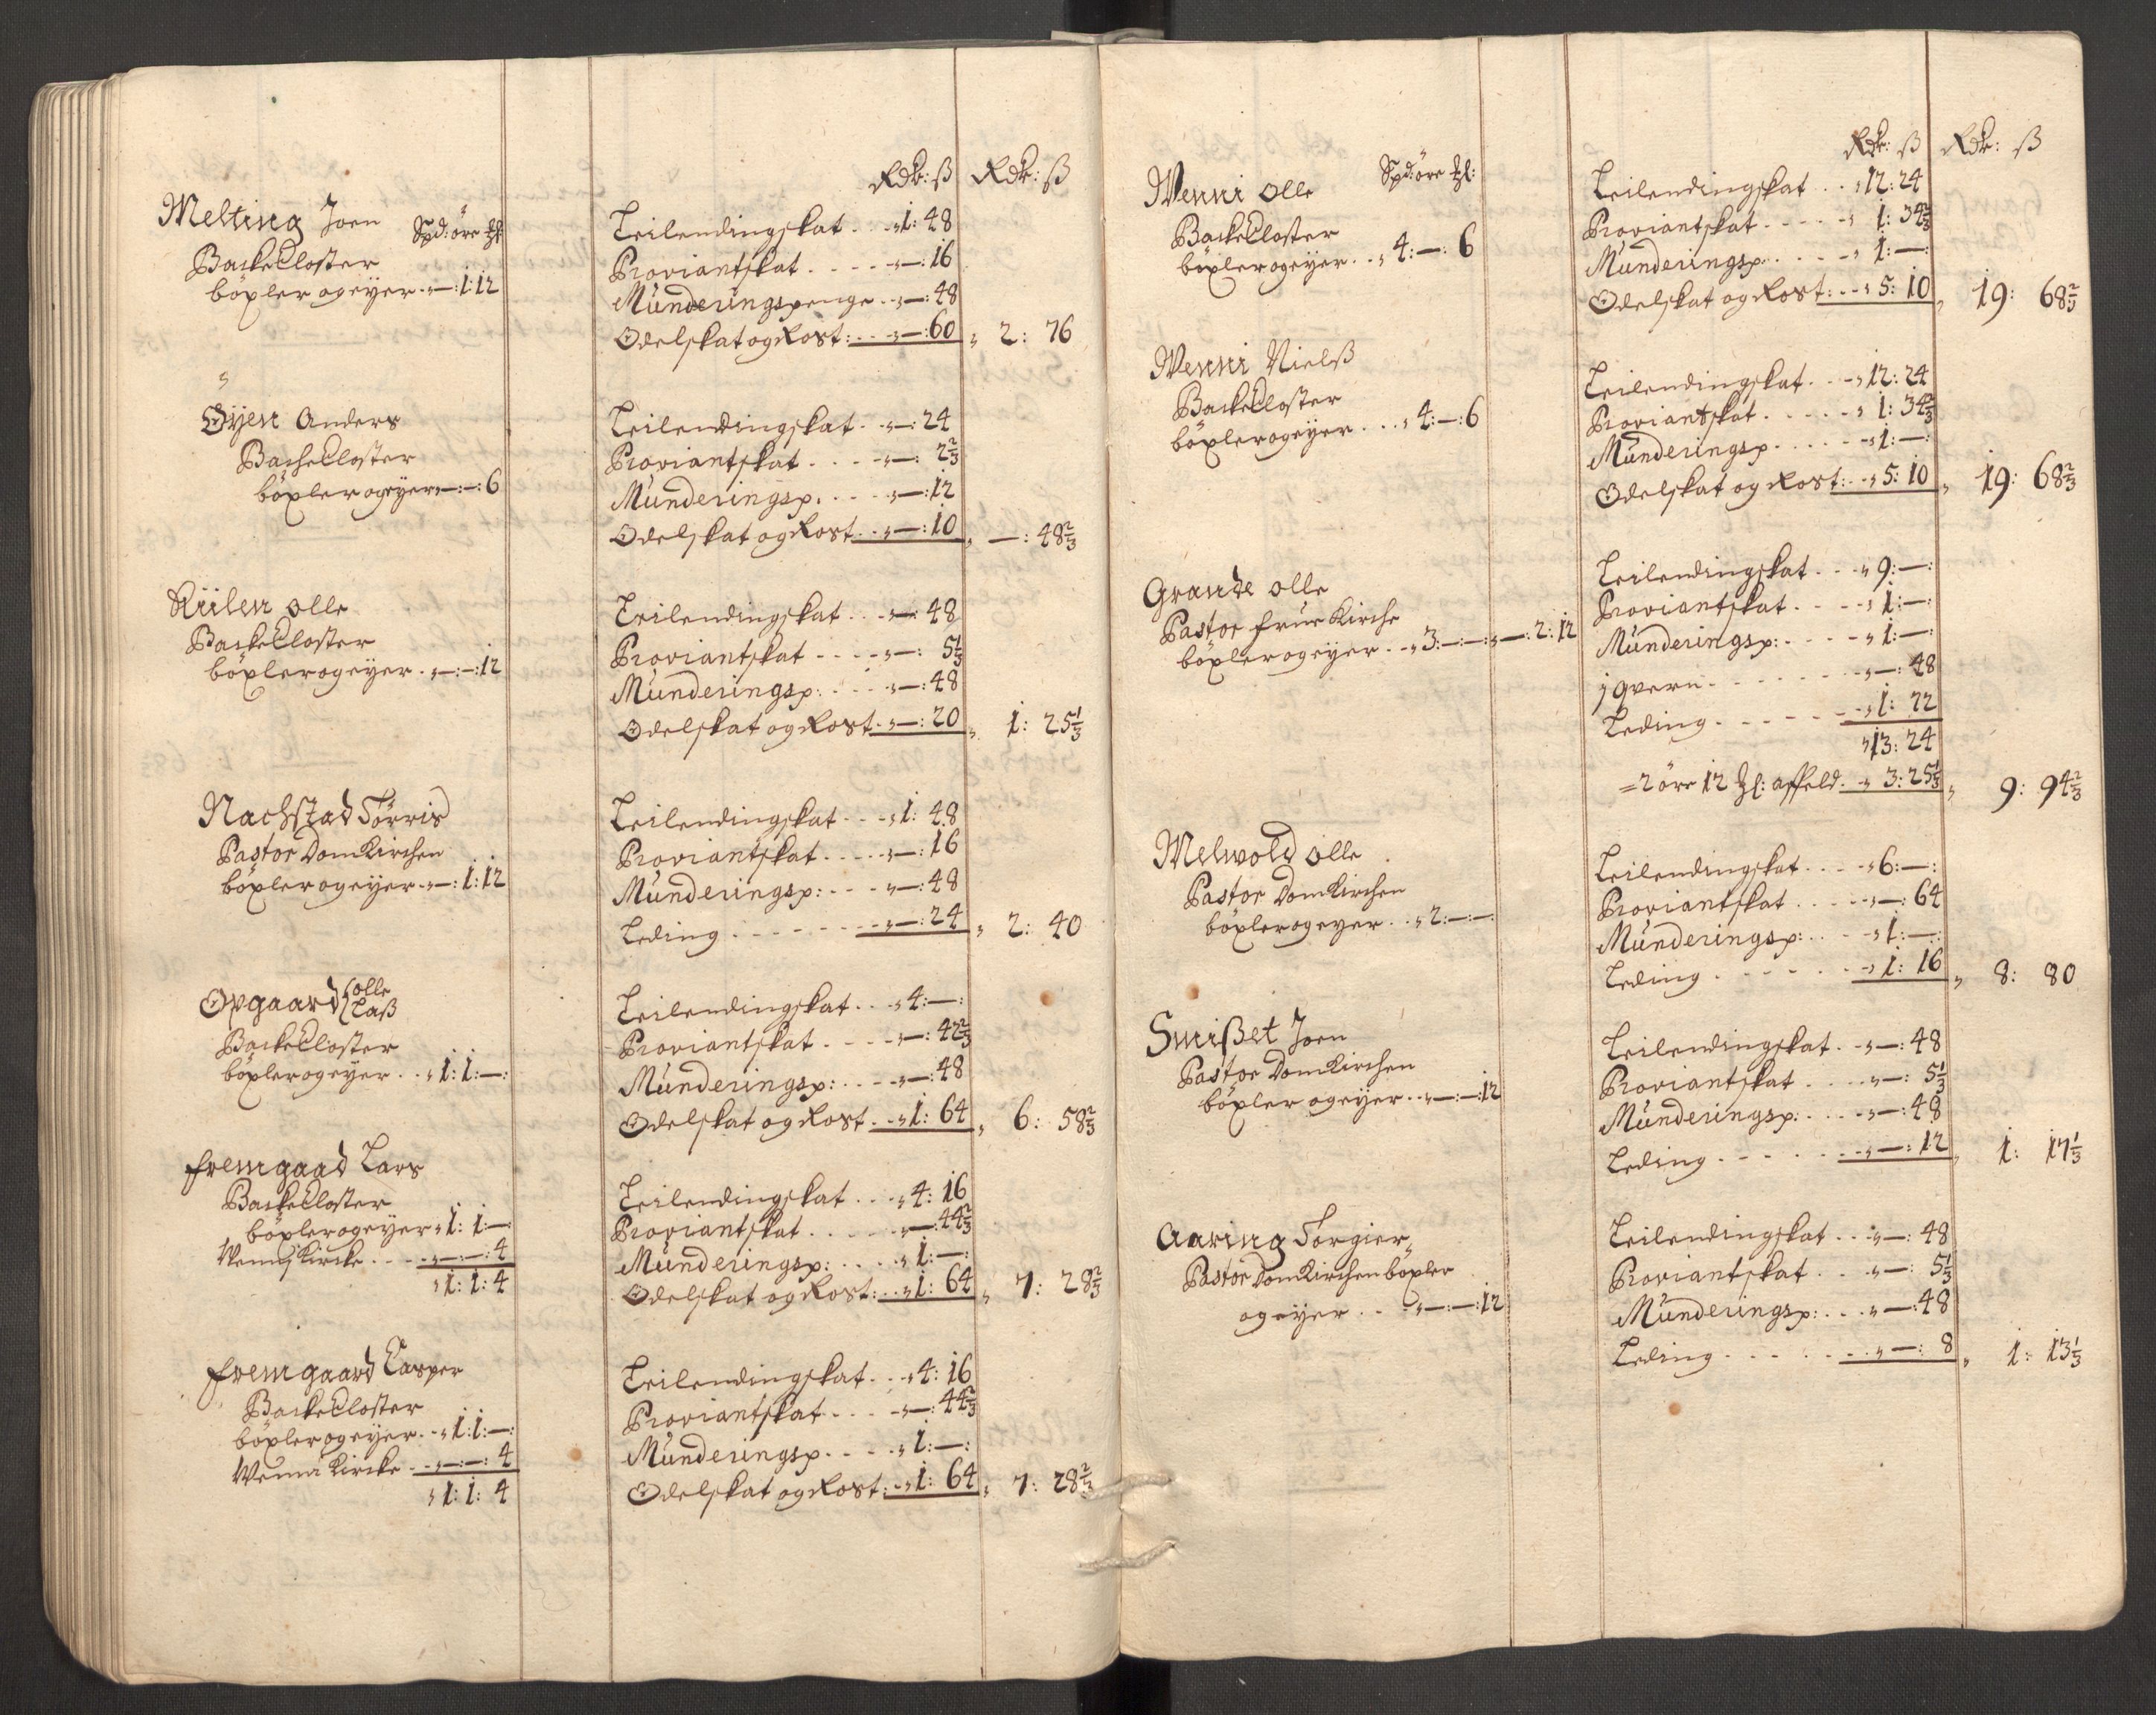 Rdr: ß Rdr: ß
Melting Joen Spd: öre ℔:
Backe Closter
böxler og eÿer . „ — : 1 : 12
Leilendingskat . . „ 1 : 48
Proviantskat . . . . „ — : 16
Munderingspenge . . „ — : 48
Odelskat og Rost : . . „ — : 60 „ 2 : 76
Öÿen Anders
Backe Closter
böxler og eÿer „ — : — : 6
Leilendingskat . . „ — : 24
Proviantskat . . . . „ — : 2 2/3
Munderingsp. . . . . „ — : 12
Odelskat og Rost . . „ — : 10 „ — : 48 2/3
Riilen Olle
Backe Closter
böxler og eÿer . „ — : — : 12
Leilendingskat . . „ — : 48
Proviantskat . . . . „ — : 5 1/3
Munderingsp: . . . „ — : 48
Odelskat og Rost . . „ — : 20 „ 1 : 25 1/3
Nachstad Törris
Pastor Dom Kirchen
böxler og eÿer . . „ — : 1 : 12
Leilendingskat . . . „ 1 : 48
Proviantskat . . . . „ — : 16
Munderingsp: . . . „ — : 48
Leding . . . . . . . „ — : 24 „ 2 : 40
Opgaard { Olle
Laß
Backe Closter
böxler og eÿer . . „ 1 : 1 : — :
Leilendingskat . . . „ 4 : — :
Proviantskat . . . . „ — : 42 2/3
Munderingsp: . . . . „ — : 48
Odelskat og Rost . . „ 1 : 64 „ 6 : 58 2/3
Fremgaad Lars
Backe Closter
böxler og eÿer „ 1 : 1 : — :
Wenns Kircke . . . . „ — : — : 4
„ 1 : 1 : 4
Leilendingskat . . . „ 4 : 16
Proviantskat . . . . . „ — : 44 2/3
Munderingsp: . . . . „ 1 : — :
Odelskat og Rost : . . „ 1 : 64 „ 7 : 28 2/3
Fremgaard Casper
Backe Closter
böxler og eÿer . . „ 1 : 1 : — :
Wenna Kircke . . „ — : — : 4
„ 1 : 1 : 4
Leilendingskat . . . „ 4 : 16
Proviantskat . . . . „ — : 44 2/3
Munderingsp . . . . „ 1 : — :
Odelskat og Rost : . „ 1 : 64 „ 7 : 28 2/3
Rdr: ß Rdr: ß
Wenni Olle Spd: öre ℔:
Backe Closter
böxler og eÿer . . „ 4 : — : 6
Leilendingskat . . . „ 12 : 24
Proviantskat . . . . . „ 1 : 34 2/3
Munderingsp: . . . . „ 1 : — :
Odelskat og Rost : . . „ 5 : 10 „ 19 : 68 2/3
Wenni Nielß
Backe Closter
böxler og eÿer . . . „ 4 : — : 6
Leilendingskat . . . „ 12 : 24
Proviantskat . . . . . „ 1 : 34 2/3
Munderingsp . . . . . „ 1 : — :
Odelskat og Rost : . . „ 5 : 10 „ 19 : 68 2/3
Grande Olle
Pastor frue Kirche
böxler og eÿer . . „ 3 : — : — : „ — : 2 : 12
Leilendingskat . . . „ 9 : — :
Proviantskat . . . . „ 1 : — :
Munderingsp: . . . . . „ 1 : — :
1 qvern . . . . . . . „ — : 48
Leding . . . . . . „ 1 : 72
„ 13 : 24
= 2 öre 12 ℔: affeld . „ 3 : 25 1/3 „ 9 : 94 2/3
Melwold Olle
Pastor Dom Kirchen
böxler og eyer . . „ 2 : — : — :
Leilendingskat . . . . „ 6 : — :
Proviantskat . . . . . „ — : 64
Munderingsp: . . . . „ 1 : — :
Leding . . . . . . . „ 1 : 16 „ 8 : 80
Smißet Joen
Pastor Dom Kirchen
böxler og eÿer . . „ — : — : 12
Leilendingskat . . „ — : 48
Proviantskat . . . . „ — : 5 1/3
Munderingsp: . . . . „ — : 48
Leding . . . . . . . „ — : 12 „ 1 : 17 1/3
Aaring Torgier
Pastor Dom Kirchen böxler
og eÿer . . . „ — : — : 12
Leilendingskat . . . „ — : 48
Proviantskat . . . „ — : 5 1/3
Munderingsp: . . . „ — : 48
Leding . . . . . . . „ — : 8 „ 1 : 13 1/3